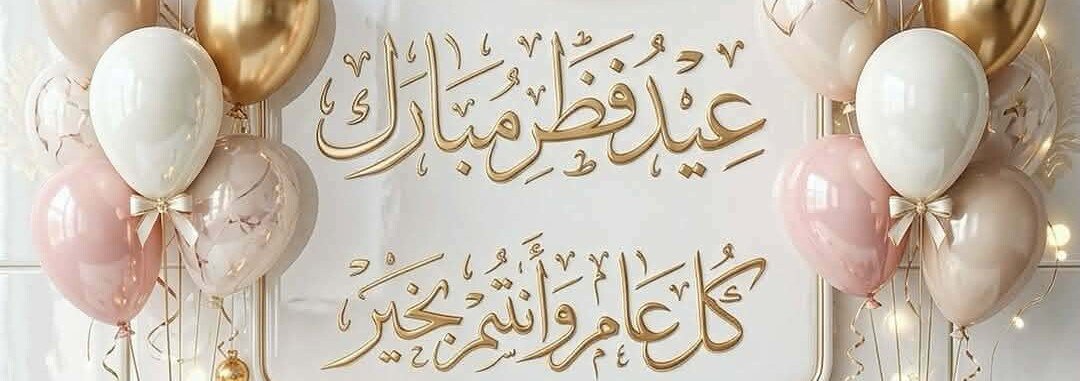 عِيْدُ فَظَر مُبَارَك
كُل عَام وَأَنتُمْ بِخَيْر